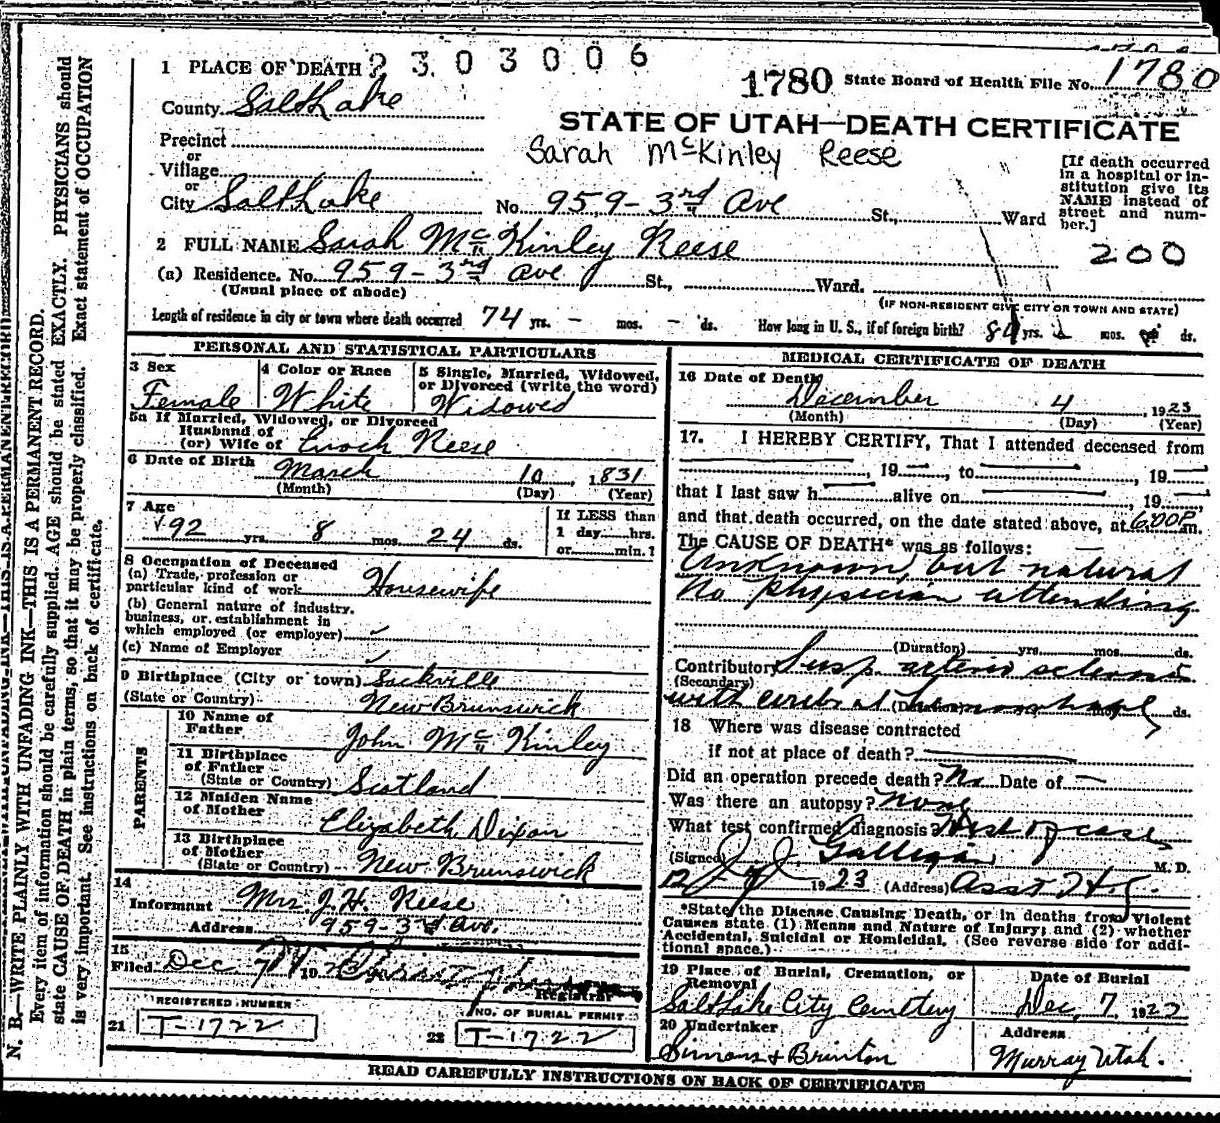 2303006
1 PLACE OF DEATH
1780 State Board of Health File No. 1780
County Salt Lake
STATE OF UTAH—DEATH CERTIFICATE
Sarah McKinley Reese
Precinct
or
Village
or
City Salt Lake No. 959-3rd Ave St., Ward
[If death occurred
in a hospital or in-
stitution give its
NAME instead of
street and num-
ber.]
200
2 FULL NAME Sarah McKinley Reese
(a) Residence. No. 959-3rd Ave St., Ward.
(Usual place of abode)
(IF NON-RESIDENT GIVE CITY OR TOWN AND STATE)
Length of residence in city or town where death occurred 74 yrs. - mos. - ds. How long in U. S., if of foreign birth? yrs. mos. ds.
PERSONAL AND STATISTICAL PARTICULARS
3 Sex
Female
4 Color or Race
White
5 Single, Married, Widowed,
or Divorced (write the word)
Widowed
5a If Married, Widowed, or Divorced
Husband of
(or) Wife of Enoch Reese
6 Date of Birth March 10, 1831
(Month) (Day) (Year)
7 Age
92 yrs. 8 mos. 24 ds.
If LESS than
1 day hrs.
or min.?
8 Occupation of Deceased
(a) Trade, profession or
particular kind of work Housewife
(b) General nature of industry,
business, or establishment in
which employed (or employer)
(c) Name of Employer
9 Birthplace (City or town) Sackville
(State or Country) New Brunswick
PARENTS
10 Name of
Father John McKinley
11 Birthplace
of Father
(State or Country) Scotland
12 Maiden Name
of Mother Elizabeth Dixon
13 Birthplace
of Mother
(State or Country) New Brunswick
14
Informant Mrs. J. H. Reese
Address 959-3rd Ave.
15
Filed Dec 7 19
Registrar
REGISTERED NUMBER
21 T-1722
NO. OF BURIAL PERMIT
22 T-1722
MEDICAL CERTIFICATE OF DEATH
16 Date of Death
December 4, 1923
(Month) (Day) (Year)
17. I HEREBY CERTIFY, That I attended deceased from
, 19 , to , 19
that I last saw h alive on , 19
and that death occurred, on the date stated above, at 6:00P m.
The CAUSE OF DEATH* was as follows:
Unknown, but natural
No physician attending
(Duration) yrs. mos. ds.
Contributory Susp. arterio sclerosis
(Secondary)
with cerebral hemorrhage
(Duration) yrs. mos. ds.
18 Where was disease contracted
if not at place of death?
Did an operation precede death? No Date of —
Was there an autopsy? None
What test confirmed diagnosis? Hist of case
(Signed) J. J. Galligan M. D.
12 1923 (Address) Asst H.
*State the Disease Causing Death, or in deaths from Violent
Causes state (1) Means and Nature of Injury; and (2) whether
Accidental, Suicidal or Homicidal. (See reverse side for addi-
tional space.)
19 Place of Burial, Cremation, or
Removal
Salt Lake City Cemetery
Date of Burial
Dec, 7, 1922
20 Undertaker
Simons & Brinton
Address
Murray Utah.
READ CAREFULLY INSTRUCTIONS ON BACK OF CERTIFICATE
N. B.—WRITE PLAINLY WITH UNFADING INK—THIS IS A PERMANENT RECORD.
Every item of information should be carefully supplied. AGE should be stated EXACTLY. PHYSICIANS should
state CAUSE OF DEATH in plain terms, so that it may be properly classified. Exact statement of OCCUPATION
is very important. See instructions on back of certificate.